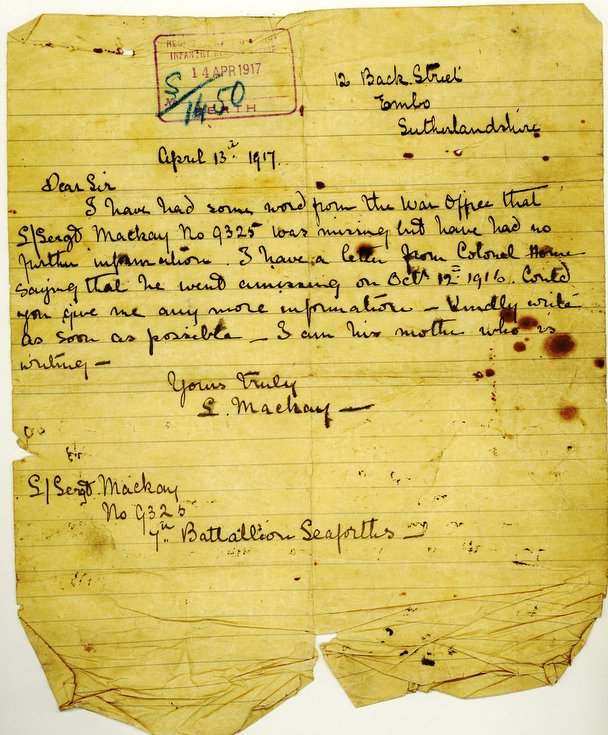 INFANTRY RECORD OFFICE
14 APR 1917
PERTH
S
1450
12 Back Street
Embo
Sutherlandshire
April 13th 1917.
Dear Sir
I have had some word from the War Office that
L/Sergt Mackay No 9325 was missing but have had no
further information. I have a letter from Colonel Horne
saying that he went amissing on Octr 12th 1916. Could
you give me any more information – Kindly write
as soon as possible – I am his mother who is
writing –
Yours truly
L. Mackay –
L/Sergt Mackay
No 9325
7th Battallion Seaforths –